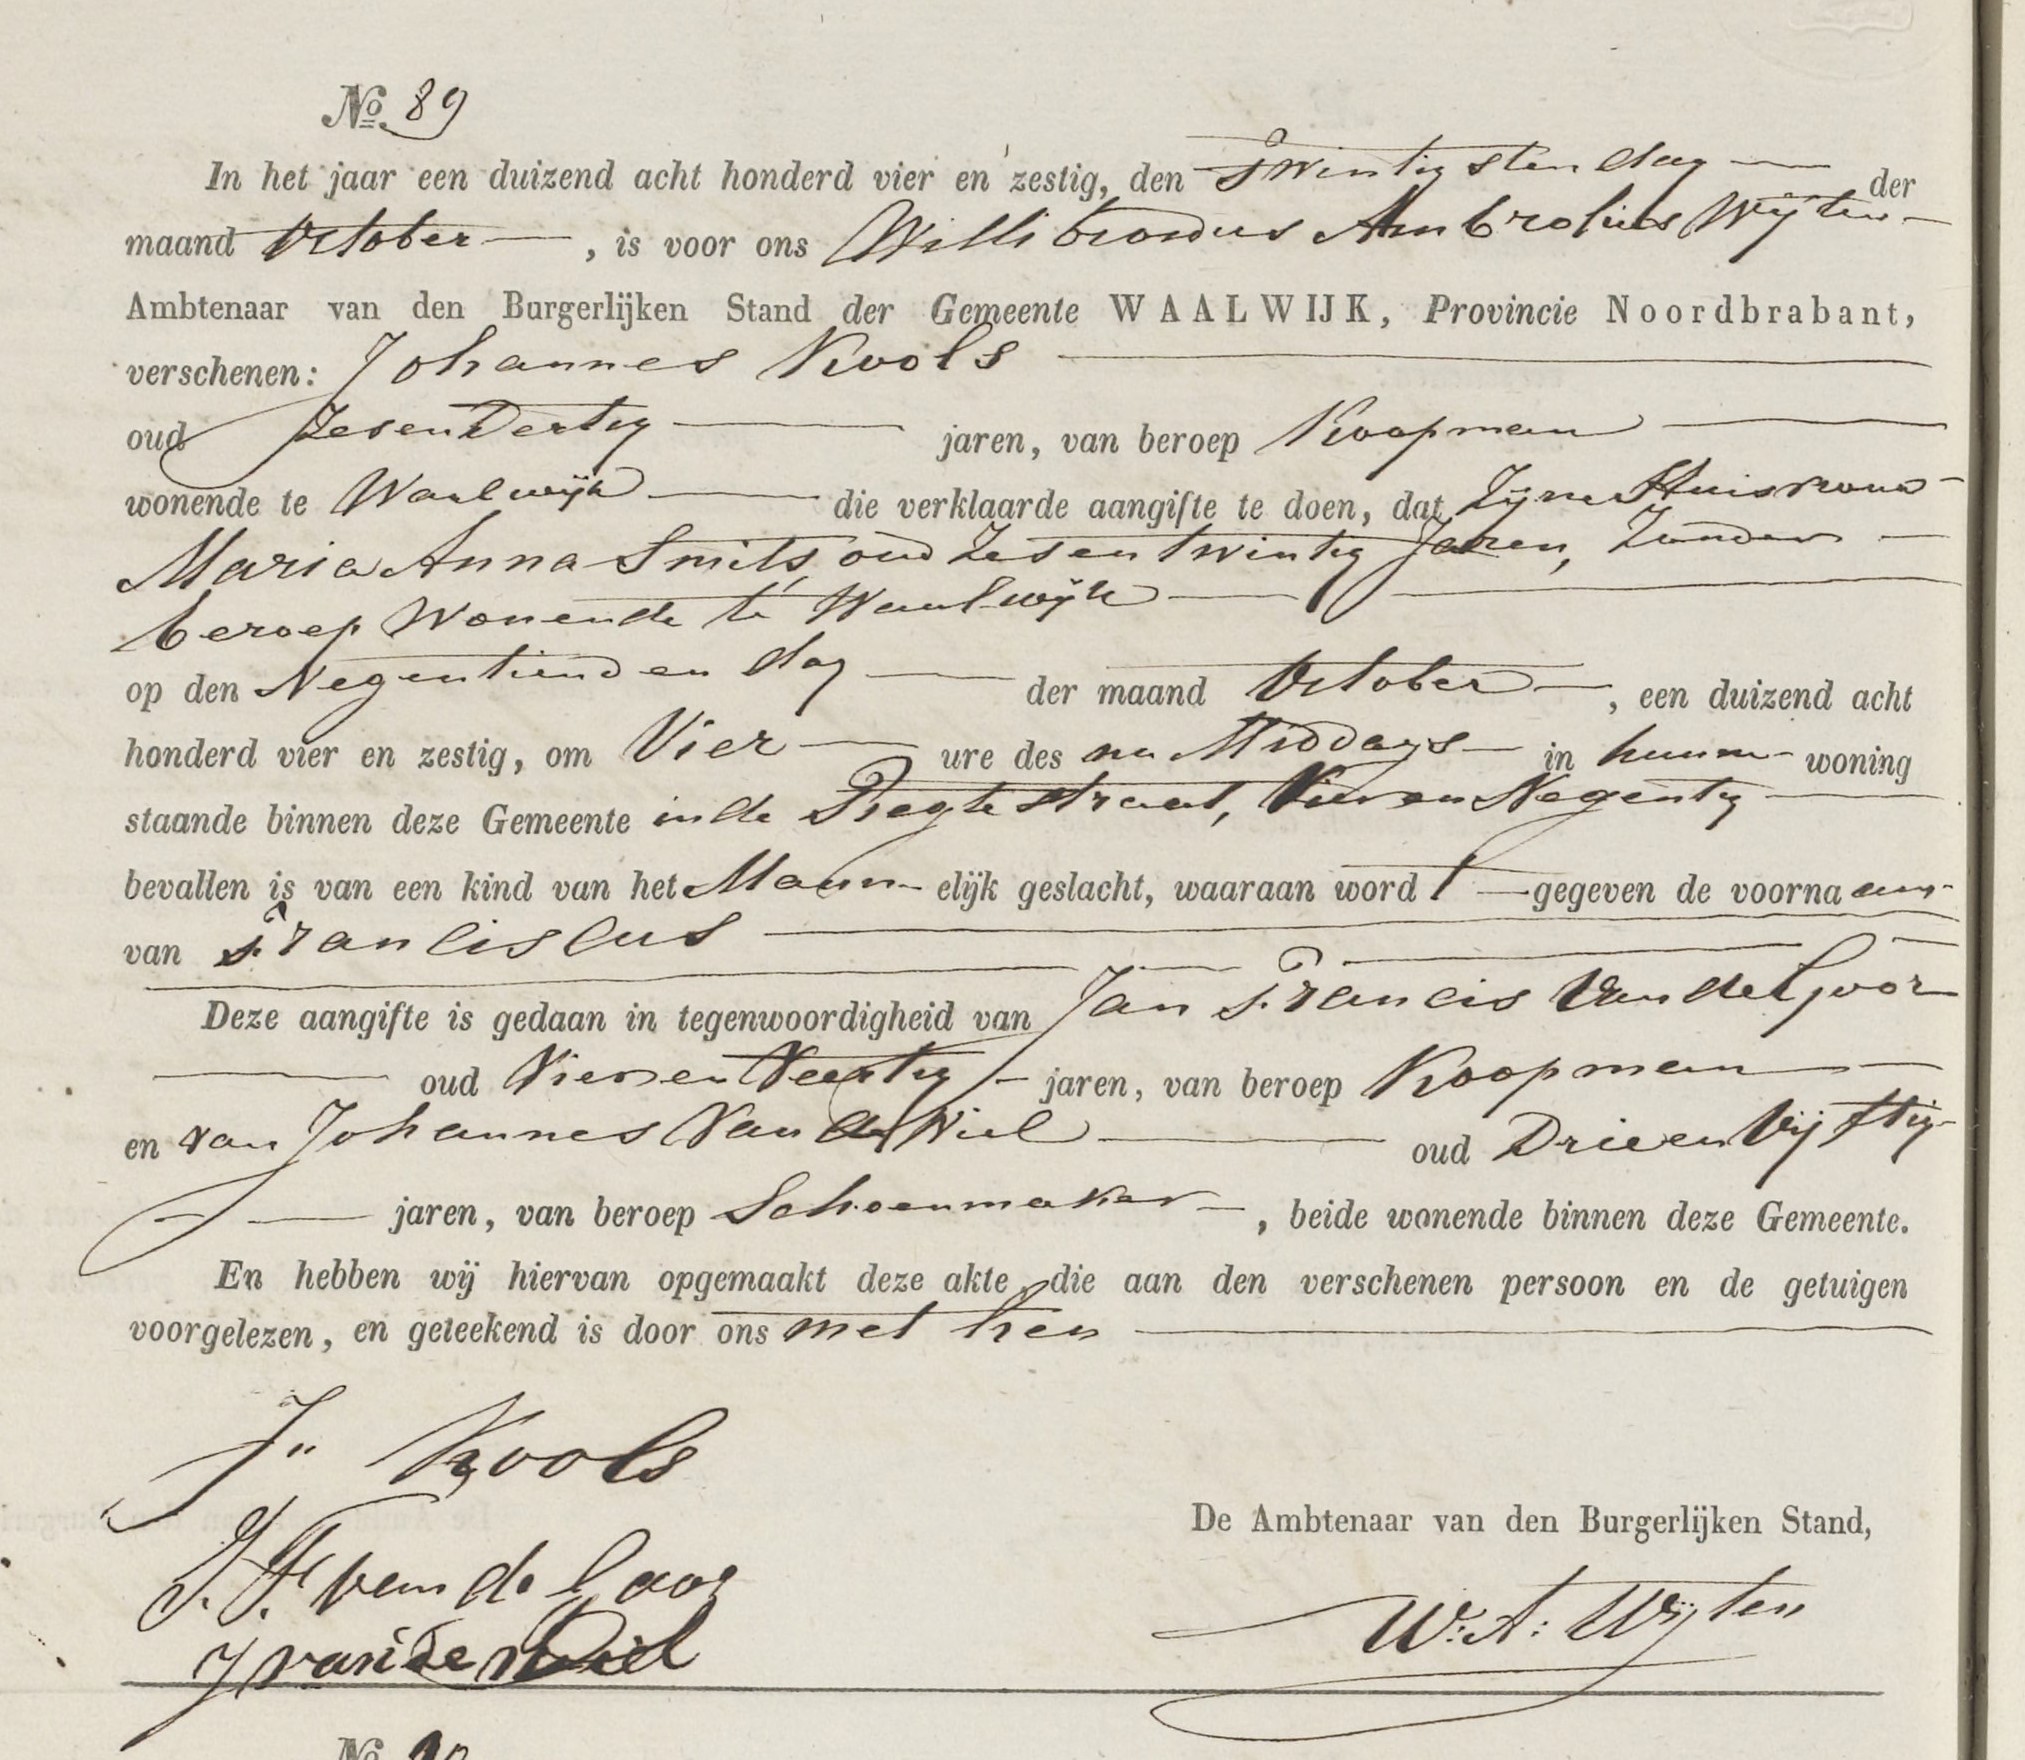 No. 89
In het jaar een duizend acht honderd vier en zestig, den Twintigsten dag der
maand October, is voor ons Willibrordus Ambrosius Wijten
Ambtenaar van den Burgerlijken Stand der Gemeente WAALWIJK, Provincie Noordbrabant,
verschenen: Johannes Kools
oud Zesendertig jaren, van beroep Koopman
wonende te Waalwijk die verklaarde aangifte te doen, dat Zijne Huisvrouw
Maria Anna Smits, oud Zesentwintig Jaren, Zonder
beroep Wonende te Waalwijk
op den Negentienden dag der maand October, een duizend acht
honderd vier en zestig, om Vier ure des na Middags in hunne woning
staande binnen deze Gemeente in de Regtestraat, Vier en Negentig
bevallen is van een kind van het Mannelijk geslacht, waaraan wordt gegeven de voornaam
van Franciscus
Deze aangifte is gedaan in tegenwoordigheid van Jan Francis Van de Goor
oud Vieren Veertig jaren, van beroep Koopman
en van Johannes Van de Wiel oud Drieen Vijftig
jaren, van beroep Schoenmaker, beide wonende binnen deze Gemeente.
En hebben wij hiervan opgemaakt deze akte, die aan den verschenen persoon en de getuigen
voorgelezen, en geteekend is door ons met hen
J. Kools
J. F. van de Goor
J van de Wiel
De Ambtenaar van den Burgerlijken Stand,
W. A. Wijten
No